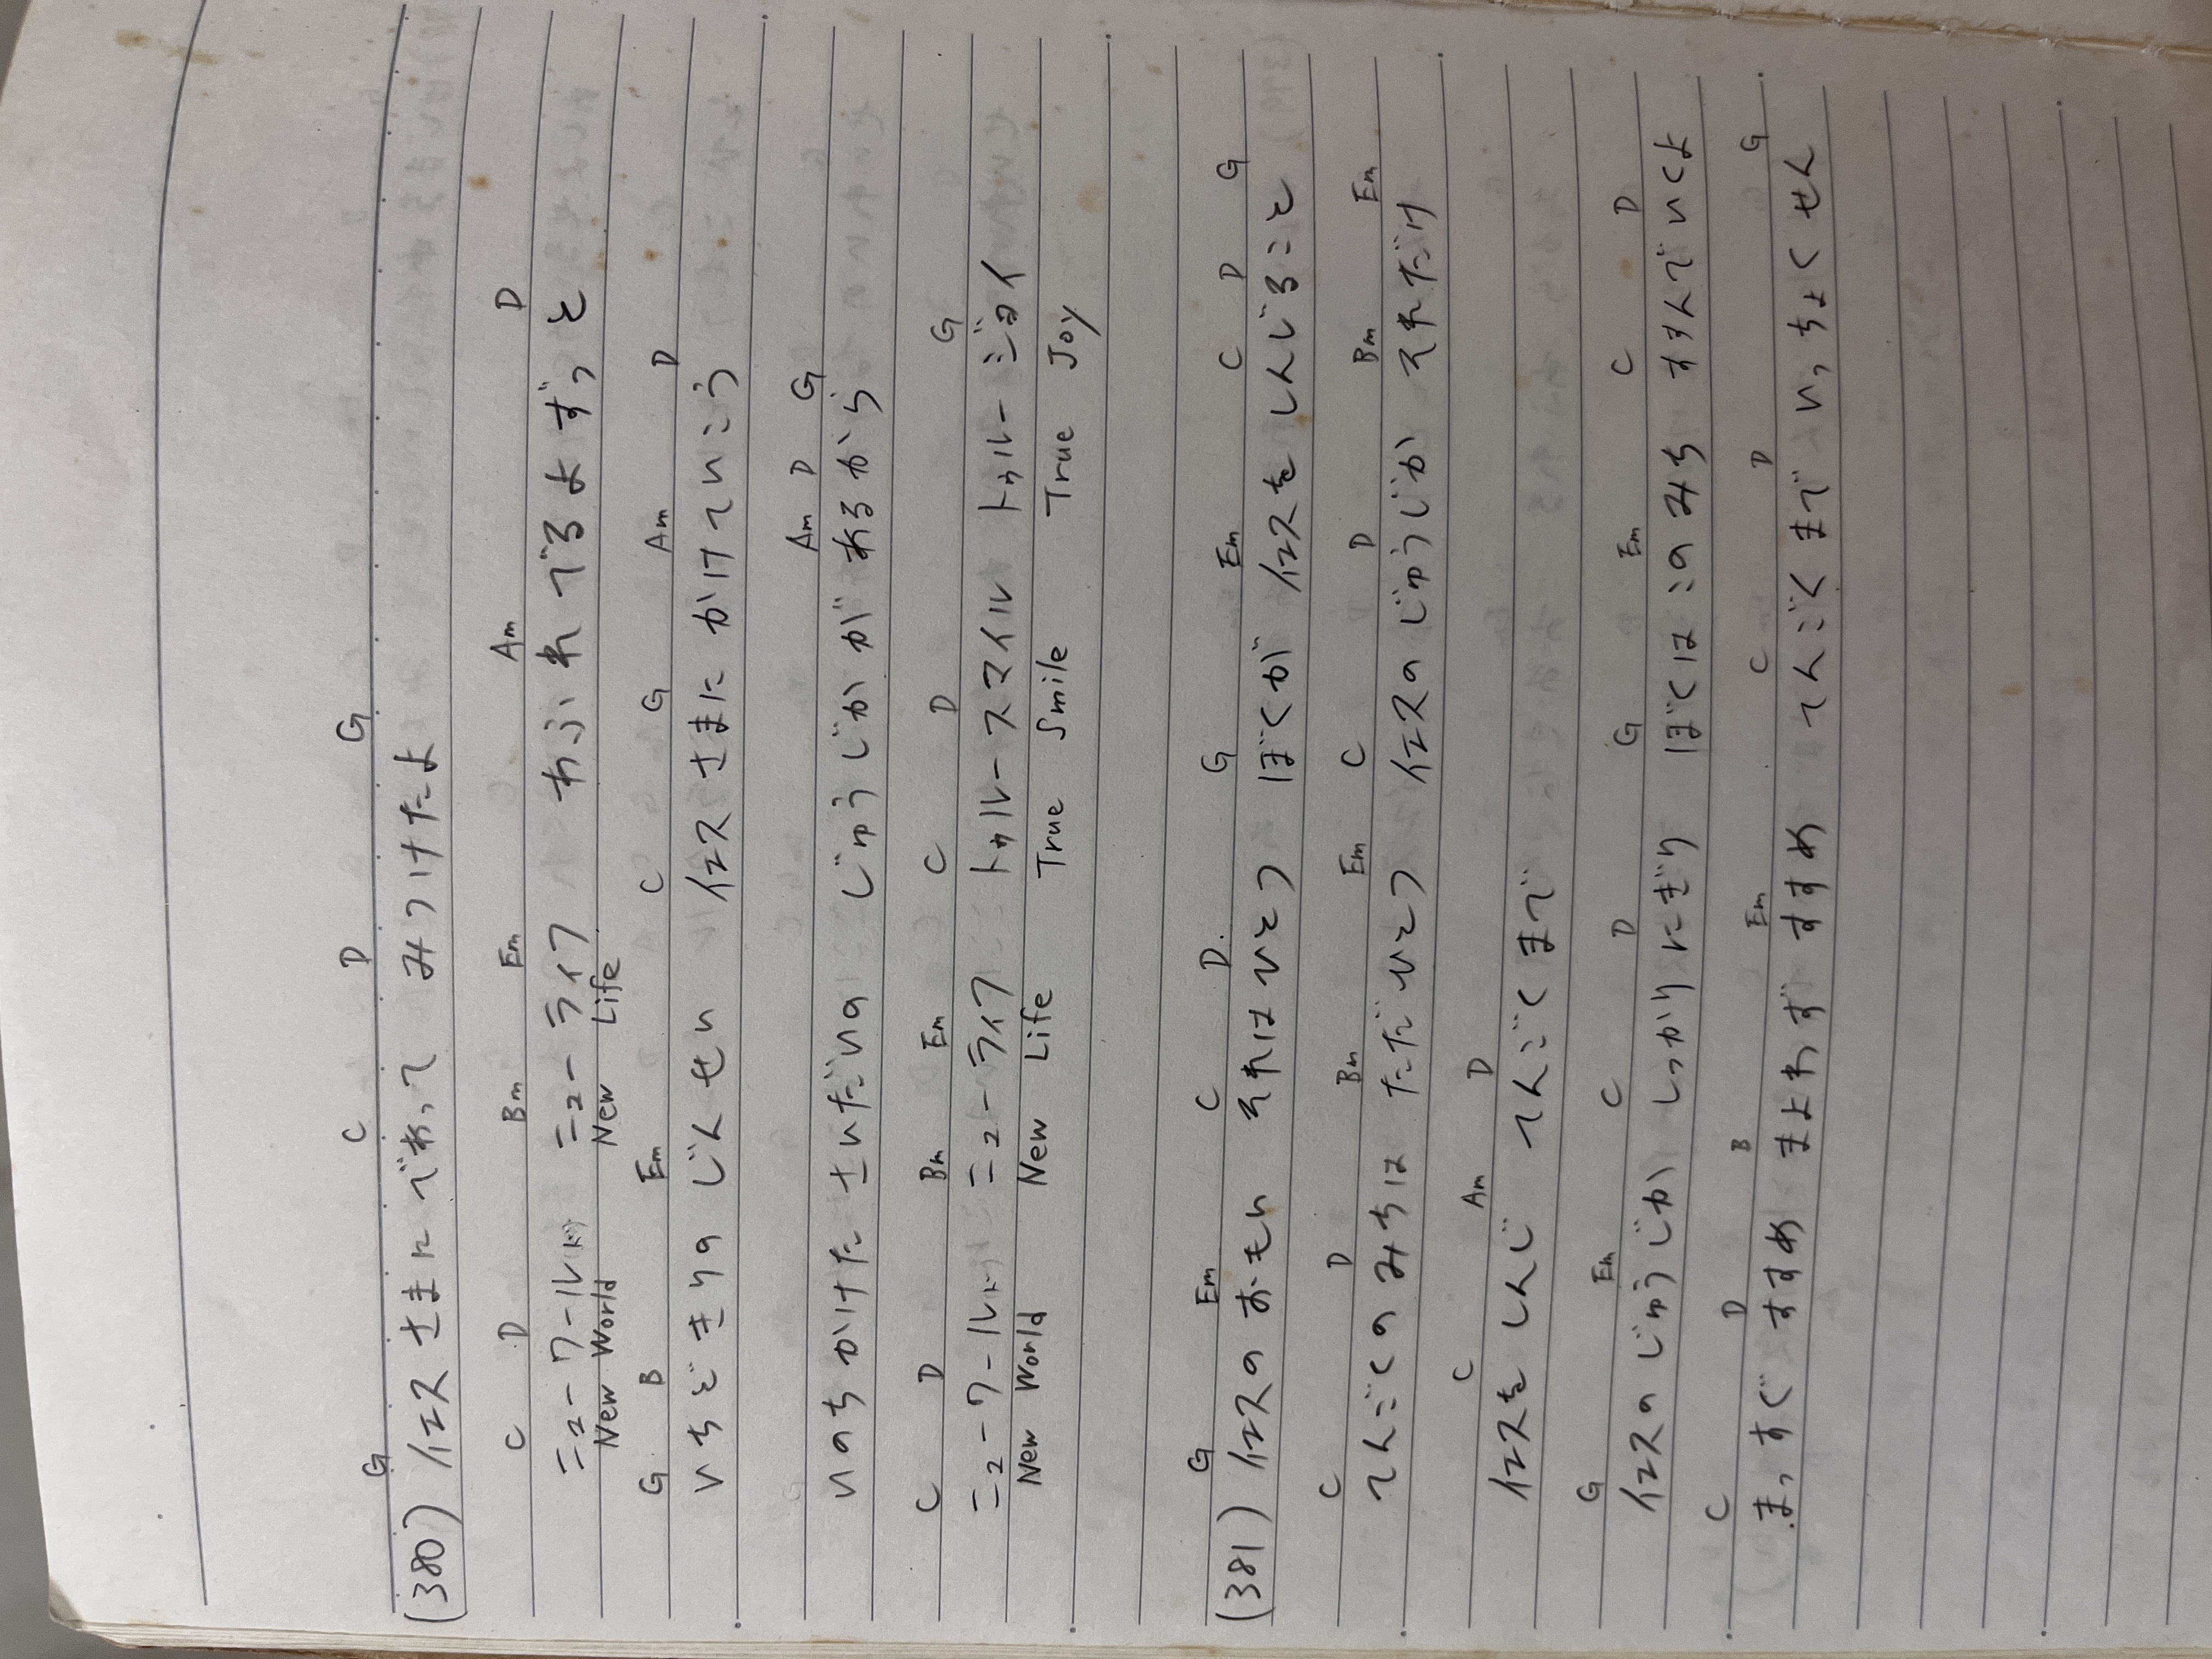 G C D G
(380) イエスさまにであって みつけたよ
C D Bm Em Am D
ニューワールド ニューライフ あふれでるよずっと
New World New Life
G B Em C G Am D
いちどきりの じんせい イエスさまに かけていこう
Am D G
いのちかけた さいだいの じゅうじかが あるから
C D Bm Em C D G
ニューワールド ニューライフ トゥルースマイル トゥルージョイ
New World New Life True Smile True Joy
G Em C D. G Em C D G
(381) イエスのおもい それはひとつ ぼくが イエスをしんじること
C D Bm Em C D Bm Em
てんごくのみちは ただひとつ イエスのじゅうじか それだけ
C Am D
イエスをしんじ てんごくまで
G Em C D G Em C D
イエスのじゅうじか しっかりにぎり ぼくはこのみち すすんでいくよ
C D B Em C D G
まっすぐすすめ まよわずすすめ てんごくまでいっちょくせん